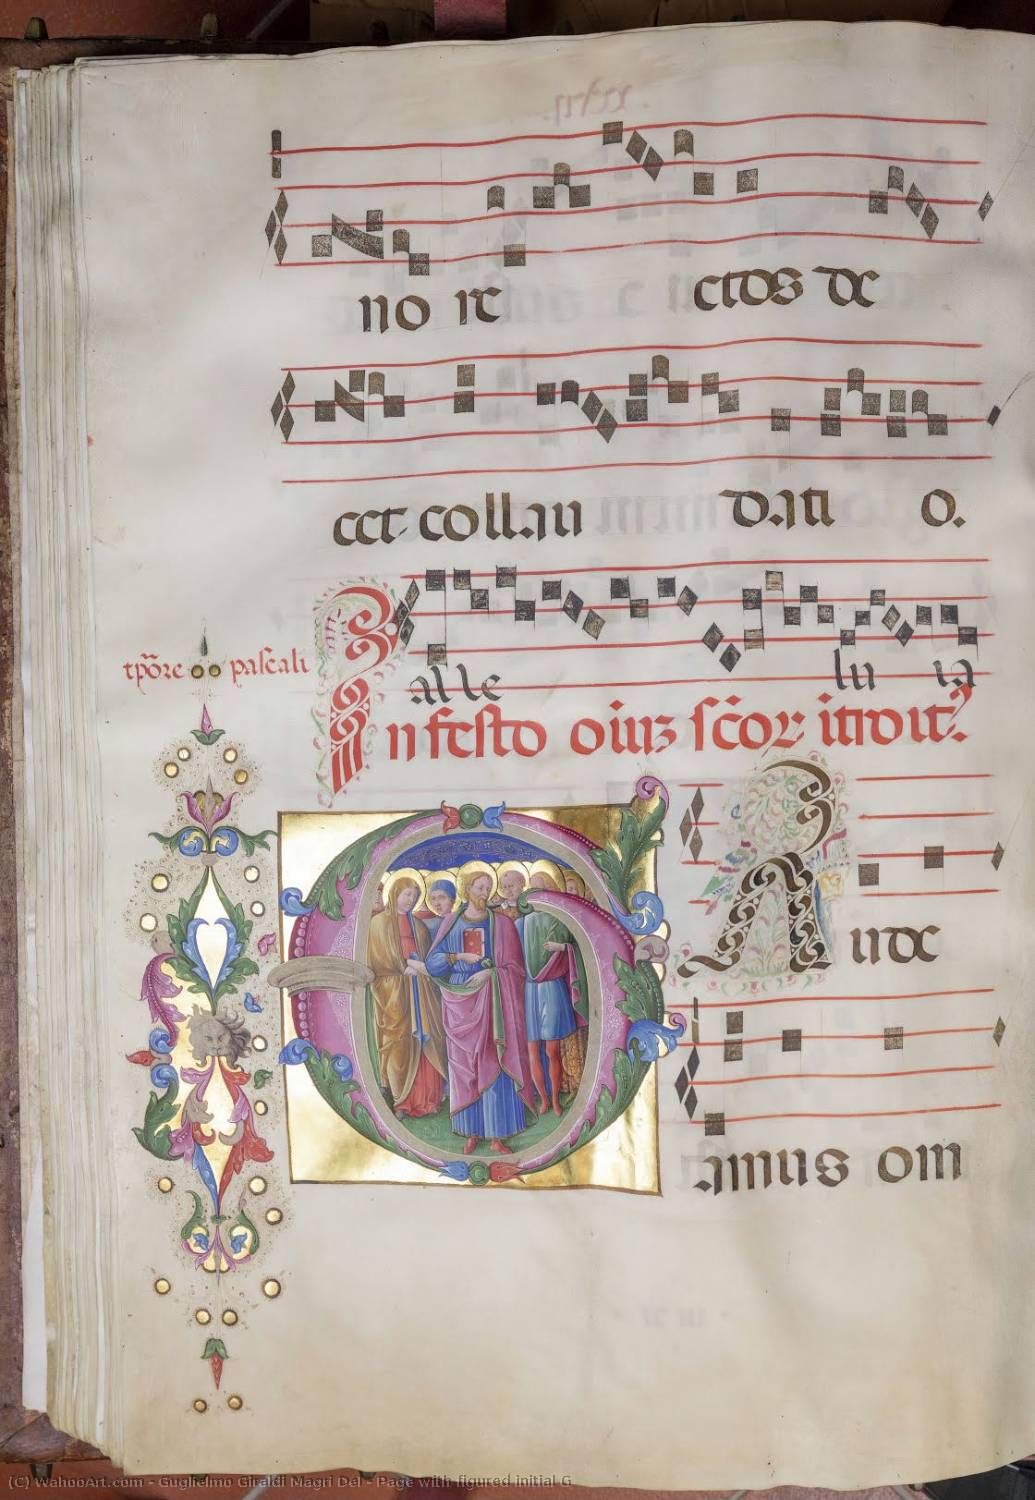 no re ctos de
cet collau dati o.
tp̃ore pascali
al le lu ia
In festo oiuȝ scõꝝ itroitꝰ
G A ude
amus om
(C) WahooArt.com - Guglielmo Giraldi Magri Del - Page with figured initial G